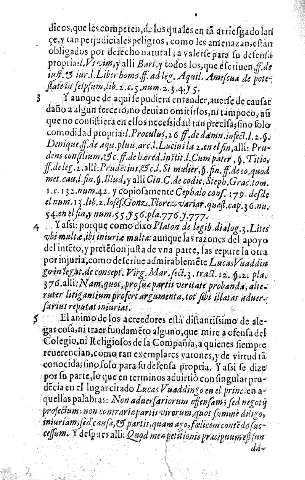 dicos, que les competen, de los quales en tã arriesgado lan
çe, y tan perjudiciales peligros, como les amenazan, están
obligados por derecho natural, a valerse para su defensa
propria, l. Vt vim, y alli Bart. y todos los que escriuen ff. de
inst. & iur. l. Liber homo ff. ad leg. Aquil. Amescua de pote-
state in se ipsum, lib. 2. c. 5. num. 2. 3. 4. 5.
3 Y aunque de aqui se pudiera entender, auerse de causar
daño a algun tercero, no deuian omitirlos, ni tampoco, assi
que no consistiera en ellos necessidad tan precisa, sino solo
comodidad propria: l. Proculus, 26 ff. de damn. infect. l. 2. §.
Denique ff. de aqu. plui. arc. l. Lucius la 2. en el fin, alli: Pru
dens consilium, & c. ff. de hæred. instit. l. Cum pater, §. Titio,
ff. de leg. 2. alli: Prudentius, & c. l. Si mulier, §. fin. ff. de eo, quod
met. cau. l. fin. §. Illud, y alli Gin. C. de codic. Steph. Grac. tom.
1. c. 132. num. 42. y copiosamente Cephalo conf. 179. desde
el num. 13. lib. 2. Iosef. Gonz. Flores variar. quæst. cap. 36. nu.
54. en el fin, y num. 55 y 56. pla. 776. y 777.
4 Y assi: porque como dixo Platon de legib. dialog. 3. Lites
vbi multæ, ibi iniuriæ multæ: aunque las razones del apoyo
del intẽto, y pretẽsion justa de vna parte, las repute la otra
por injuria, como descriue admirablemẽte Lucas Vuaddin
go in legat. de concept. Virg. Mar. sect. 3. tract. 12. §. 2. pla.
376. alli: Nam, quot, pro suæ partis veritate probanda, alte-
ruter litigantium profert argumenta, tot sibi illatas aduer-
sarius reputat iniurias.
5 El animo de los acreedores està distantissimo de ale-
gar cosa, ni traer fundamẽto alguno, que mire a ofensa del
Colegio, ni Religiosos de la Compañia, a quienes siempre
reuerencian, como tan exemplares varones, y de virtud tã
conocida: sino solo para su defensa propria. Y assi se dize
por su parte, lo que en terminos aduirtio con singular pru
dencia en el lugar citado Lucas Vuaddingo en el princ. en a-
quellas palabras: Non aduersariorum offensam; sed negotij
profectum: non contrariæ partis virorum, quos summè diligo,
iniuriam; sed causæ, & partis, quam ago, fœlicem contẽdo suc-
cessum. Y despues alli: Quod meæ petitionis præcipuum est fun
da-